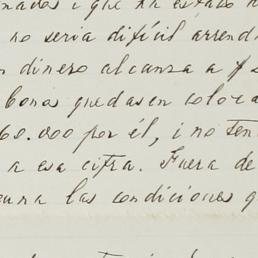 nados i que ha estado
no seria difícil arrend
n dinero alcanza a $
bonos quedasen coloca
60.000 por él, i no ten
a esa cifra. Fuera de
una las condiciones q